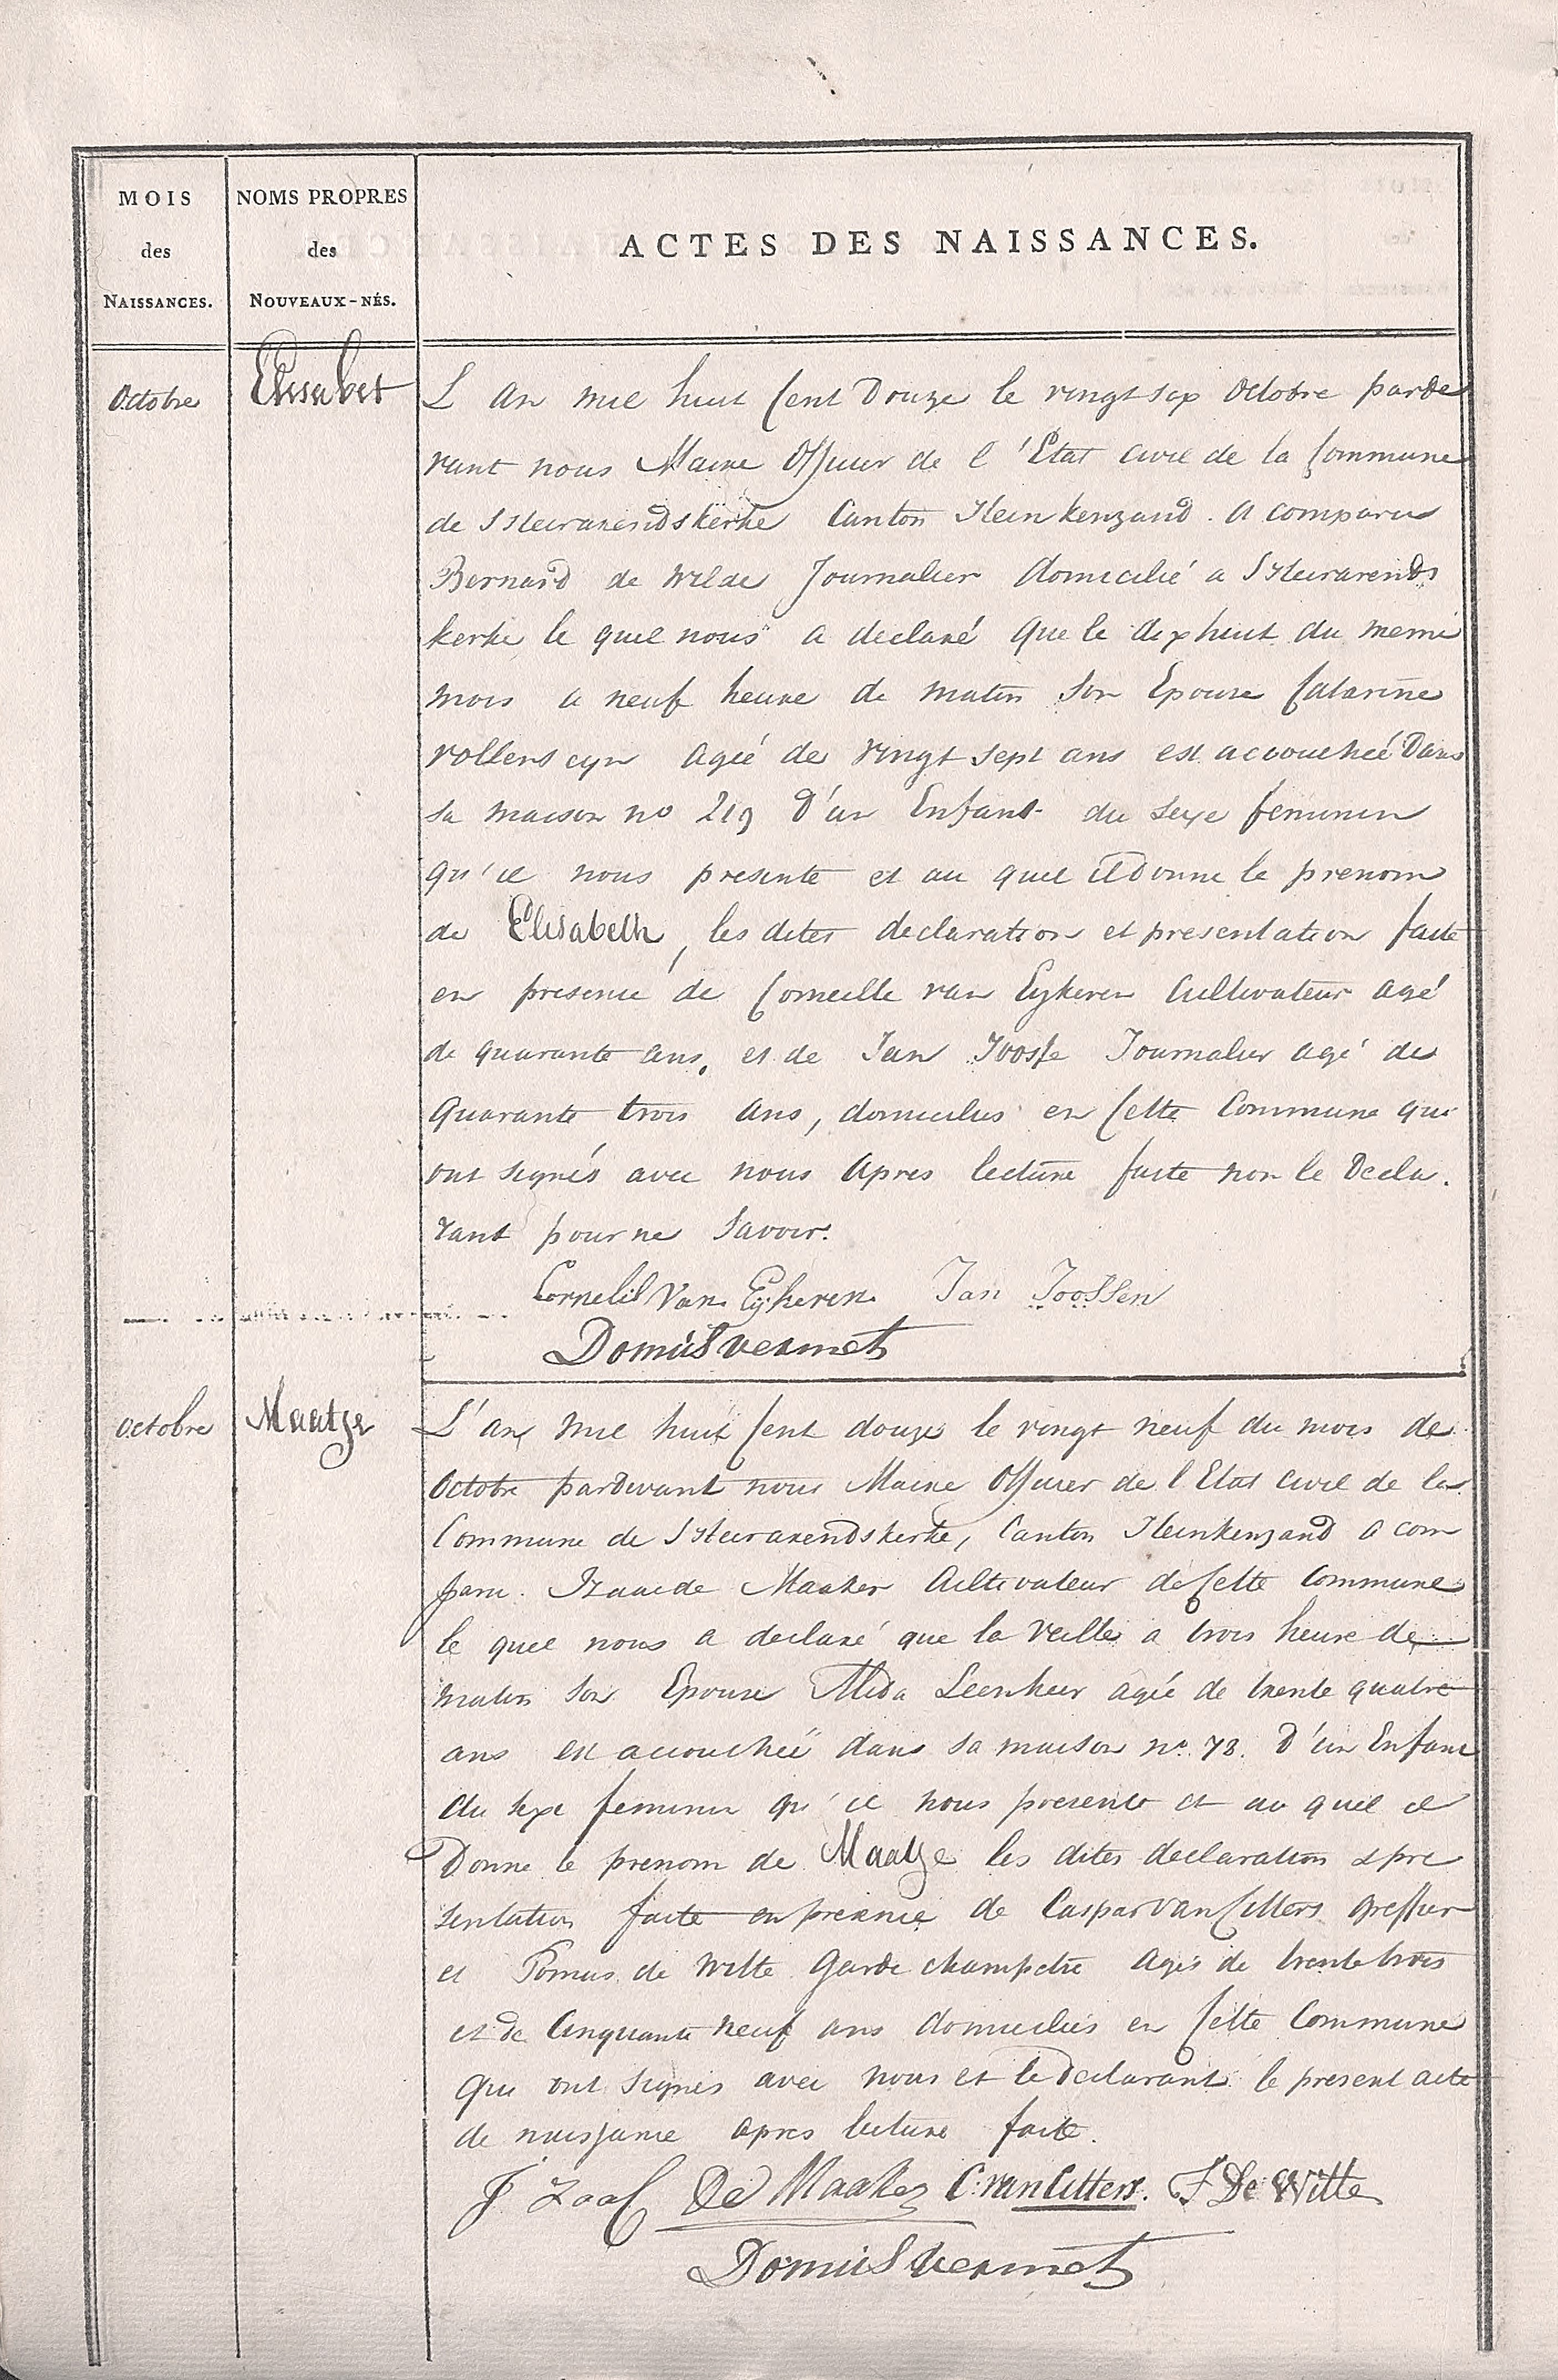 MOIS
des
NAISSANCES.
NOMS PROPRES
des
NOUVEAUX-NÉS.
ACTES DES NAISSANCES.
Octobre
Elisabet
L an mil huit Cent Douze le vingt six Octobre parde
vant nous Maire Officier de l'Etat civil de la Commune
de SHeerarendskerke Canton Heinkenzand. a comparu
Bernard de Wilde Journalier domicilié a SHeerarends
kerke le quel nous a declaré que le dix huit du meme
mois a neuf heure de matin son Epouse Catarine
agée de vingt sept ans est accouchée Dans
sa maison no 219 D'un Enfant du sexe feminin
qu'il nous presente et au quel il Donne le prenom
de Elisabeth, les dites declaration et presentation faite
en presence de Corneille van Eykeren Cultivateur agé
de quarante ans, et de Jan Joosse Journalier agé de
quarante trois ans, domicilies en Cette Commune qui
ont signés avec nous apres lecture faite non le Decla.
rant pour ne Savoir.
Cornelis Van Eijkeren Jan Joossen
Domus vermet
Octobre
Maatje
L'an mil huit Cent douze le vingt neuf du mois de
Octobre pardevant nous Maire Officier de l Etat civil de la
Commune de SHeerarendskerke, Canton Heinkenzand a com
paru. Izaac de Maaker Cultivateur de Cette Commune
le quel nous a declaré que la veille a trois heure de
matin son Epouse Alida Leenheer agée de trente quatre
ans est accouchée dans sa maison no. 78. D'un Enfant
du sexe feminin qu'il nous presente et au quel il
Donne le prenom de Maatje les dites declaration & pre
sentation faite en presence de Caspar van Citters greffier
et de Witte Garde champetre agés de trente trois
et de Cinquante neuf ans domicilies en Cette Commune
qui ont signés avec nous et le Declarant le present acte
de naissance apres lecture faite.
J Zaac De Maaker C. van Citters. F De Witte
Domus vermet